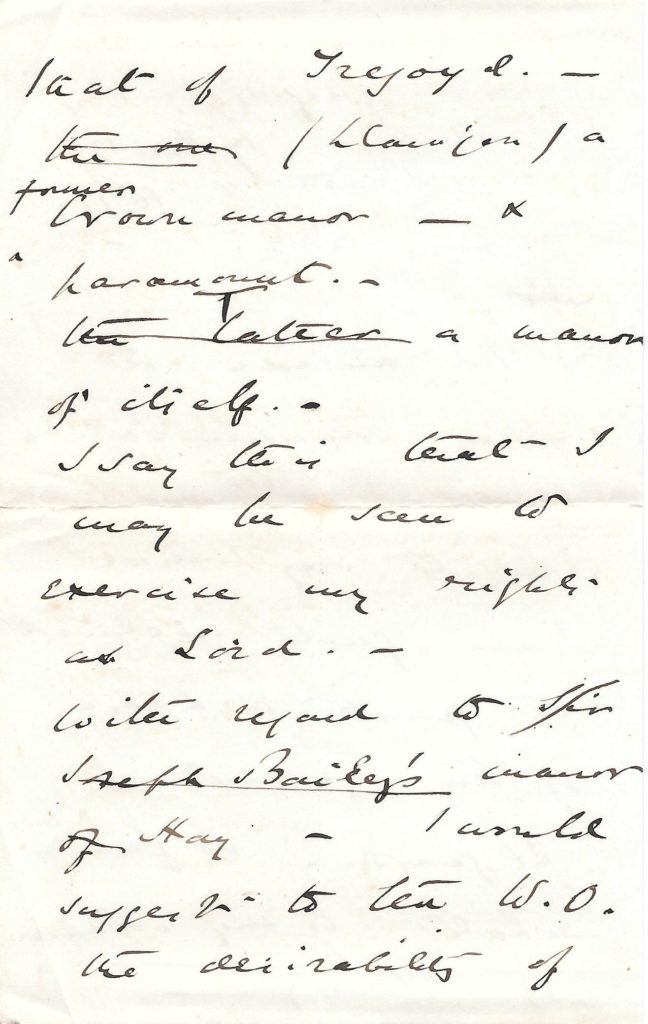 that of Tregoyd. —
the one (Llanigon) a
former
Crown manor — &
a
paramount. —
T
the latter a manor
of itself. —
I say this that I
may be seen to
exercise my rights
as Lord. —
With regard to Sir
Joseph Bailey's manor
of Hay — I would
suggest to the W.O.
the desirability of